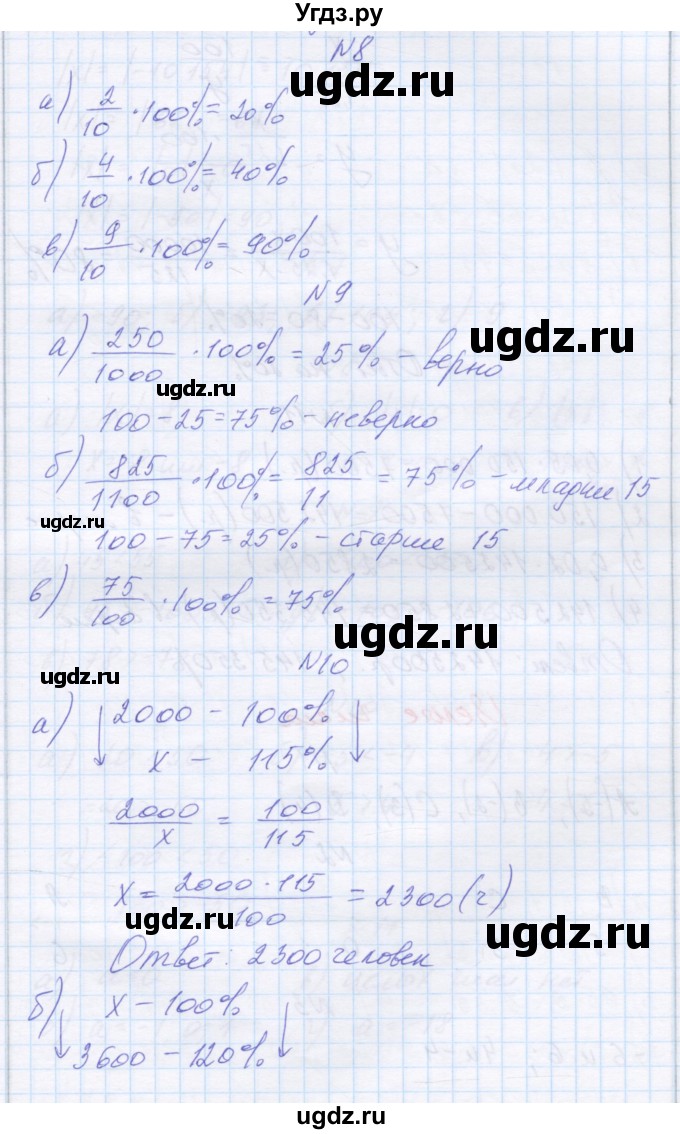 Угдз.ру
N8
а) 2/10 · 100% = 20%
б) 4/10 · 100% = 40%
в) 9/10 · 100% = 90%
N9
а) 250/1000 · 100% = 25% – верно
ugdz.ru
ugdz.ru
100 – 25 = 75% – неверно
б) 825/1100 · 100% = 825/11 = 75% – младше 15
ugdz.ru
100 – 75 = 25% – старше 15
в) 75/100 · 100% = 75%
ugdz.ru
N10
ugdz.ru
а) ↓ 2000 – 100% ↓
х – 115%
2000/х = 100/115
х = 2000 · 115/100 = 2300 (ч)
ugdz.ru
ugdz.ru
Ответ: 2300 человек
б) ↓ х – 100% ↓
3600 – 120%
ugdz.ru